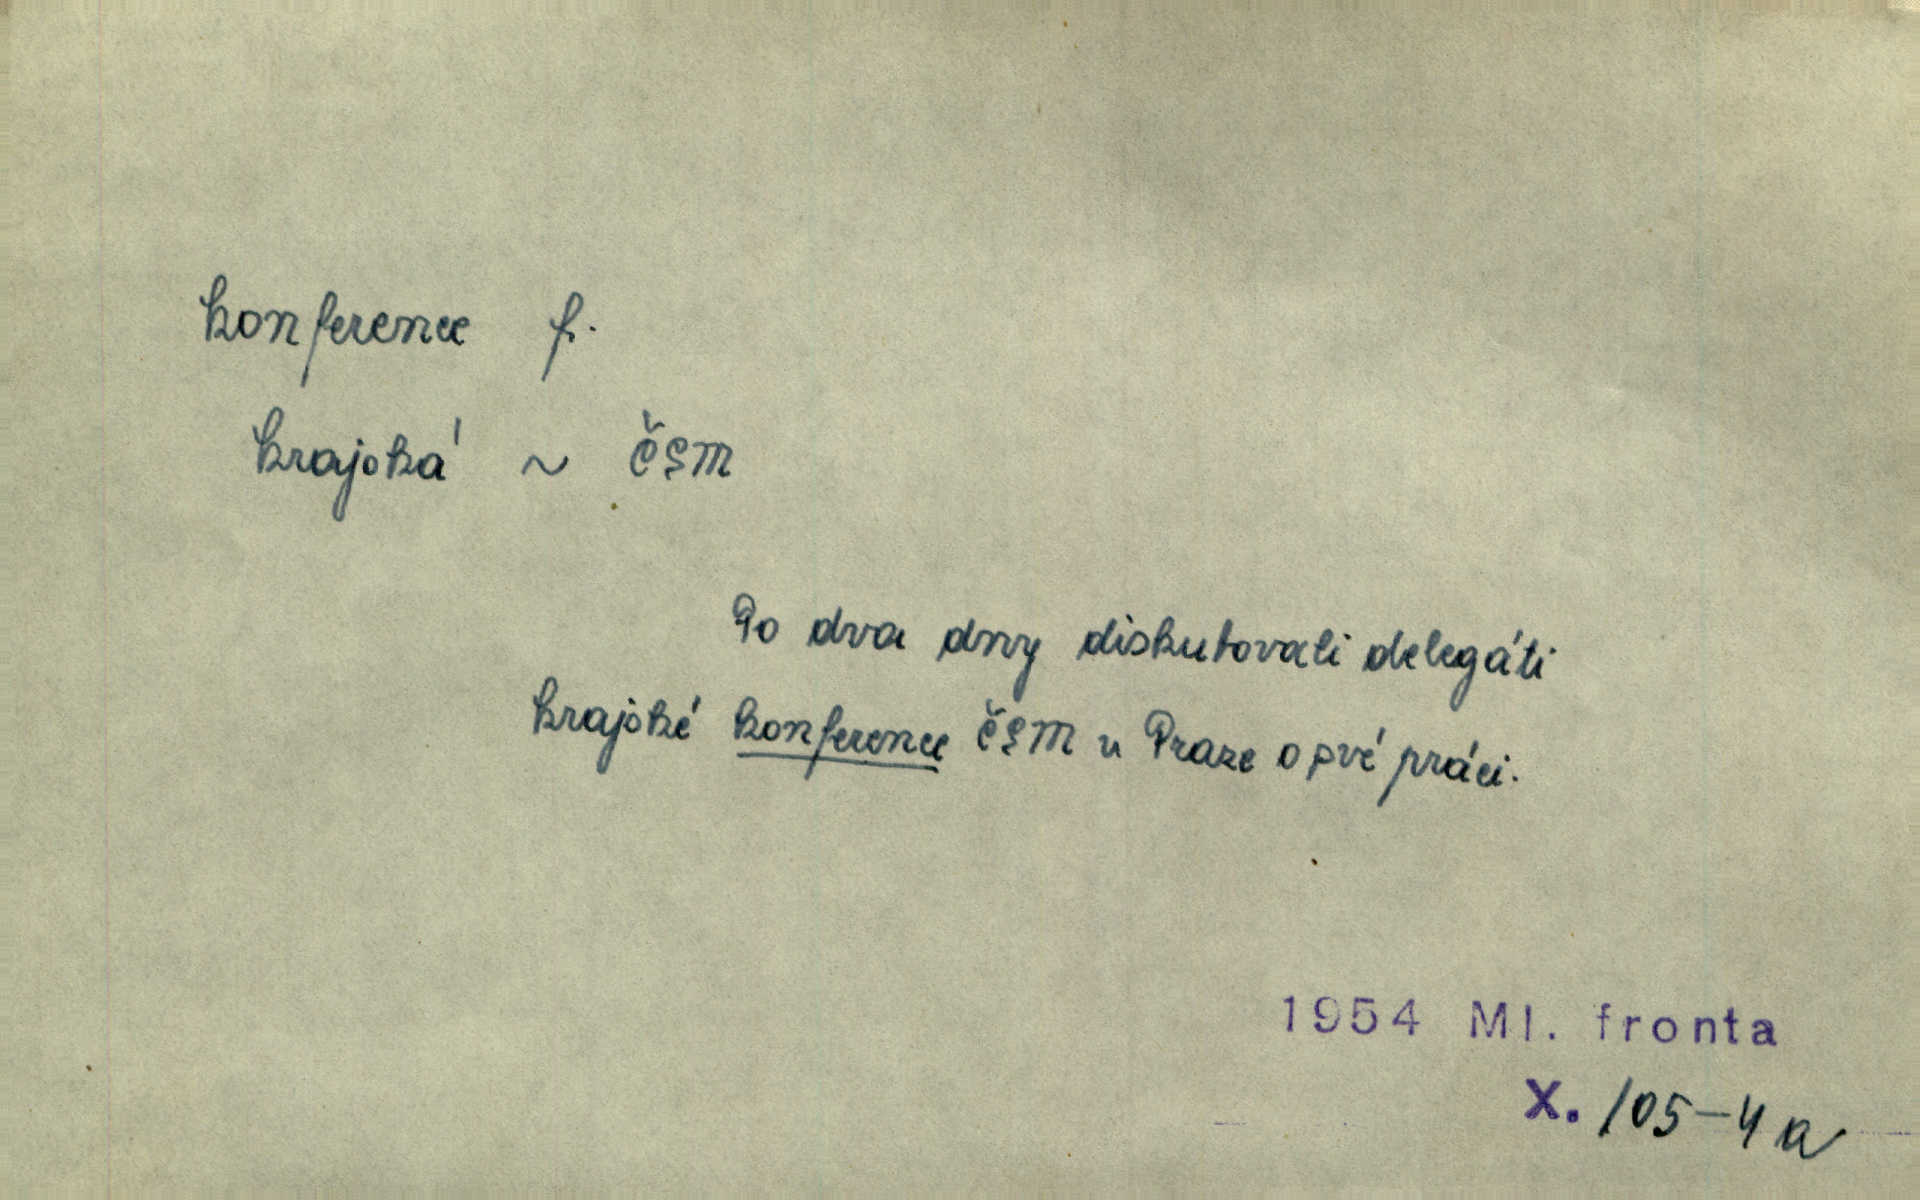 konference f.
krajská ~ ČSM
Po dva dny diskutovali delegáti
krajské konference ČSM v Praze o své práci.
1954 Ml. fronta
X. 105-4a